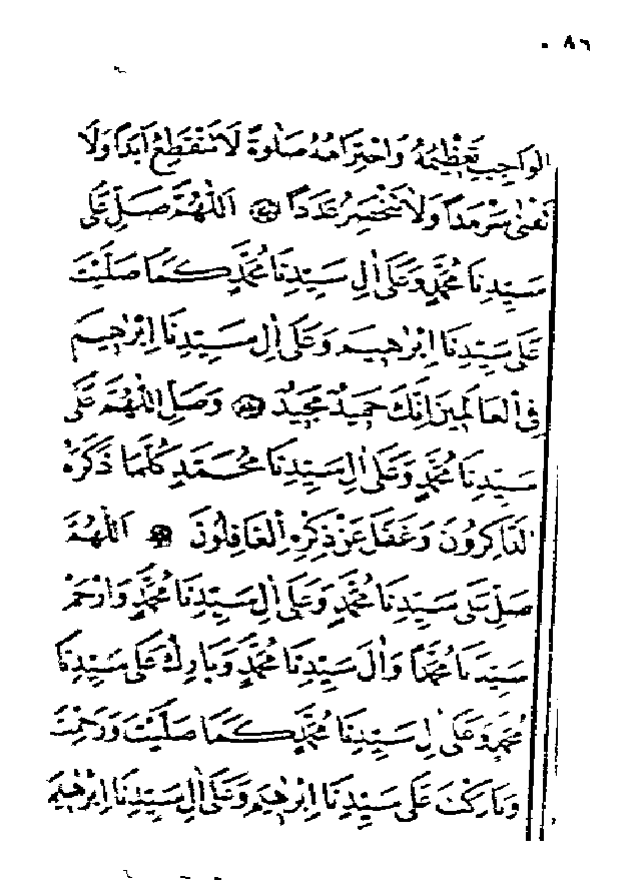 ٨٦
الْوَاجِبِ تَعْظِيمُهُ وَاحْتِرَامُهُ صَلٰوةً لَا تَنْقَطِعُ اَبَدًا وَلَا
تَفْنٰى سَرْمَدًا وَلَا تَنْحَصِرُ عَدَدًا اَللّٰهُمَّ صَلِّ عَلٰى
سَيِّدِنَا مُحَمَّدٍ وَعَلٰى اٰلِ سَيِّدِنَا مُحَمَّدٍ كَمَا صَلَّيْتَ
عَلٰى سَيِّدِنَا اِبْرٰهِيمَ وَعَلٰى اٰلِ سَيِّدِنَا اِبْرٰهِيمَ
فِى الْعَالَمِينَ اِنَّكَ حَمِيدٌ مَجِيدٌ وَصَلِّ اللّٰهُمَّ عَلٰى
سَيِّدِنَا مُحَمَّدٍ وَعَلٰى اٰلِ سَيِّدِنَا مُحَمَّدٍ كُلَّمَا ذَكَرَهُ
الذَّاكِرُونَ وَغَفَلَ عَنْ ذِكْرِهِ الْغَافِلُونَ اَللّٰهُمَّ
صَلِّ عَلٰى سَيِّدِنَا مُحَمَّدٍ وَعَلٰى اٰلِ سَيِّدِنَا مُحَمَّدٍ وَارْحَمْ
سَيِّدَنَا مُحَمَّدًا وَاٰلَ سَيِّدِنَا مُحَمَّدٍ وَبَارِكْ عَلٰى سَيِّدِنَا
مُحَمَّدٍ وَعَلٰى اٰلِ سَيِّدِنَا مُحَمَّدٍ كَمَا صَلَّيْتَ وَرَحِمْتَ
وَبَارَكْتَ عَلٰى سَيِّدِنَا اِبْرٰهِيمَ وَعَلٰى اٰلِ سَيِّدِنَا اِبْرٰهِيمَ